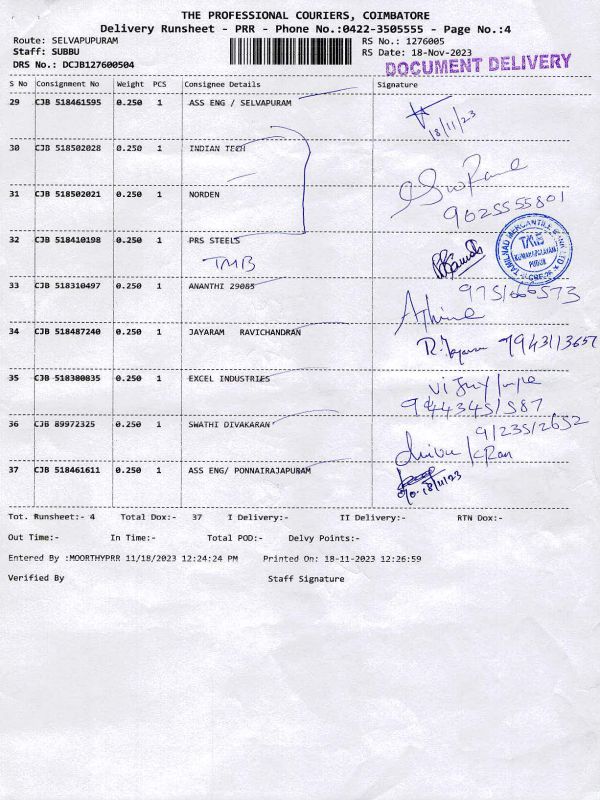 THE PROFESSIONAL COURIERS, COIMBATORE
Delivery Runsheet - PRR - Phone No.:0422-3505555 - Page No.:4
Route: SELVAPUPURAM RS No.: 1276005
Staff: SUBBU RS Date: 18-Nov-2023
DRS No.: DCJB127600504 DOCUMENT DELIVERY
S No Consignment No Weight PCS Consignee Details Signature
29 CJB 518461595 0.250 1 ASS ENG / SELVAPURAM
18/11/23
30 CJB 518502028 0.250 1 INDIAN TECH
31 CJB 518502021 0.250 1 NORDEN
9025555801
32 CJB 518410198 0.250 1 PRS STEELS
TMB
TAMILNAD MERCANTILE BANK LTD
TMB
33 CJB 518310497 0.250 1 ANANTHI 29085
34 CJB 518487240 0.250 1 JAYARAM RAVICHANDRAN
R. Jayaram 7943113657
35 CJB 518380835 0.250 1 EXCEL INDUSTRIES
36 CJB 89972325 0.250 1 SWATHI DIVAKARAN
37 CJB 518461611 0.250 1 ASS ENG/ PONNAIRAJAPURAM
18/11/23
Tot. Runsheet:- 4 Total Dox:- 37 I Delivery:- II Delivery:- RTN Dox:-
Out Time:- In Time:- Total POD:- Delvy Points:-
Entered By :MOORTHYPRR 11/18/2023 12:24:24 PM Printed On: 18-11-2023 12:26:59
Verified By Staff Signature